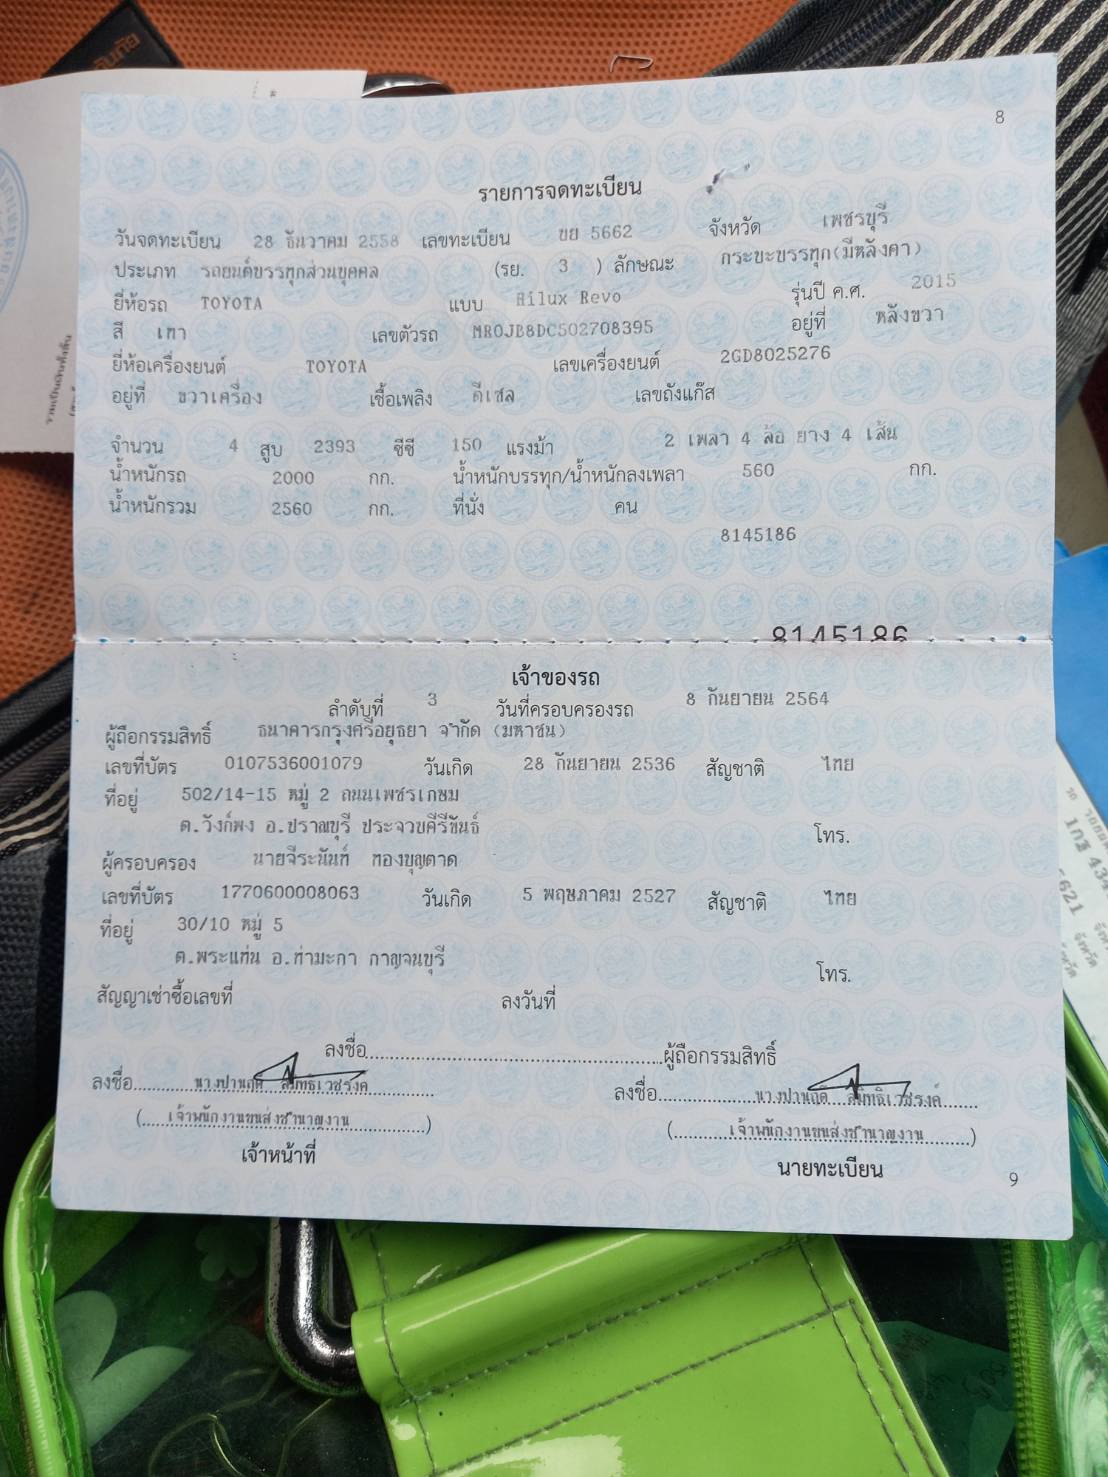 8
รายการจดทะเบียน
วันจดทะเบียน 28 ธันวาคม 2558 เลขทะเบียน ขย 5662 จังหวัด เพชรบุรี
ประเภท รถยนต์บรรทุกส่วนบุคคล (รย. 3 ) ลักษณะ กระบะบรรทุก(มีหลังคา)
ยี่ห้อรถ TOYOTA แบบ Hilux Revo รุ่นปี ค.ศ. 2015
สี เทา เลขตัวรถ MR0JB8DC502708395 อยู่ที่ หลังขวา
ยี่ห้อเครื่องยนต์ TOYOTA เลขเครื่องยนต์ 2GD8025276
อยู่ที่ ขวาเครื่อง เชื้อเพลิง ดีเซล เลขถังแก๊ส
จำนวน 4 สูบ 2393 ซีซี 150 แรงม้า 2 เพลา 4 ล้อ ยาง 4 เส้น
น้ำหนักรถ 2000 กก. น้ำหนักบรรทุก/น้ำหนักลงเพลา 560 กก.
น้ำหนักรวม 2560 กก. ที่นั่ง คน
8145186
8145186
เจ้าของรถ
ลำดับที่ 3 วันที่ครอบครองรถ 8 กันยายน 2564
ผู้ถือกรรมสิทธิ์ ธนาคารกรุงศรีอยุธยา จำกัด (มหาชน)
เลขที่บัตร 0107536001079 วันเกิด 28 กันยายน 2536 สัญชาติ ไทย
ที่อยู่ 502/14-15 หมู่ 2 ถนนเพชรเกษม
ต.วังก์พง อ.ปราณบุรี ประจวบคีรีขันธ์ โทร.
ผู้ครอบครอง นายจีระนันท์ ทองบุญตาด
เลขที่บัตร 1770600008063 วันเกิด 5 พฤษภาคม 2527 สัญชาติ ไทย
ที่อยู่ 30/10 หมู่ 5
ต.พระแท่น อ.ท่ามะกา กาญจนบุรี โทร.
สัญญาเช่าซื้อเลขที่ ลงวันที่
ลงชื่อ ผู้ถือกรรมสิทธิ์
ลงชื่อ นางปานฤดี สมิทธิเวชรงค์ ลงชื่อ นางปานฤดี สมิทธิเวชรงค์
(เจ้าพนักงานขนส่งชำนาญงาน) (เจ้าพนักงานขนส่งชำนาญงาน)
เจ้าหน้าที่ นายทะเบียน
9